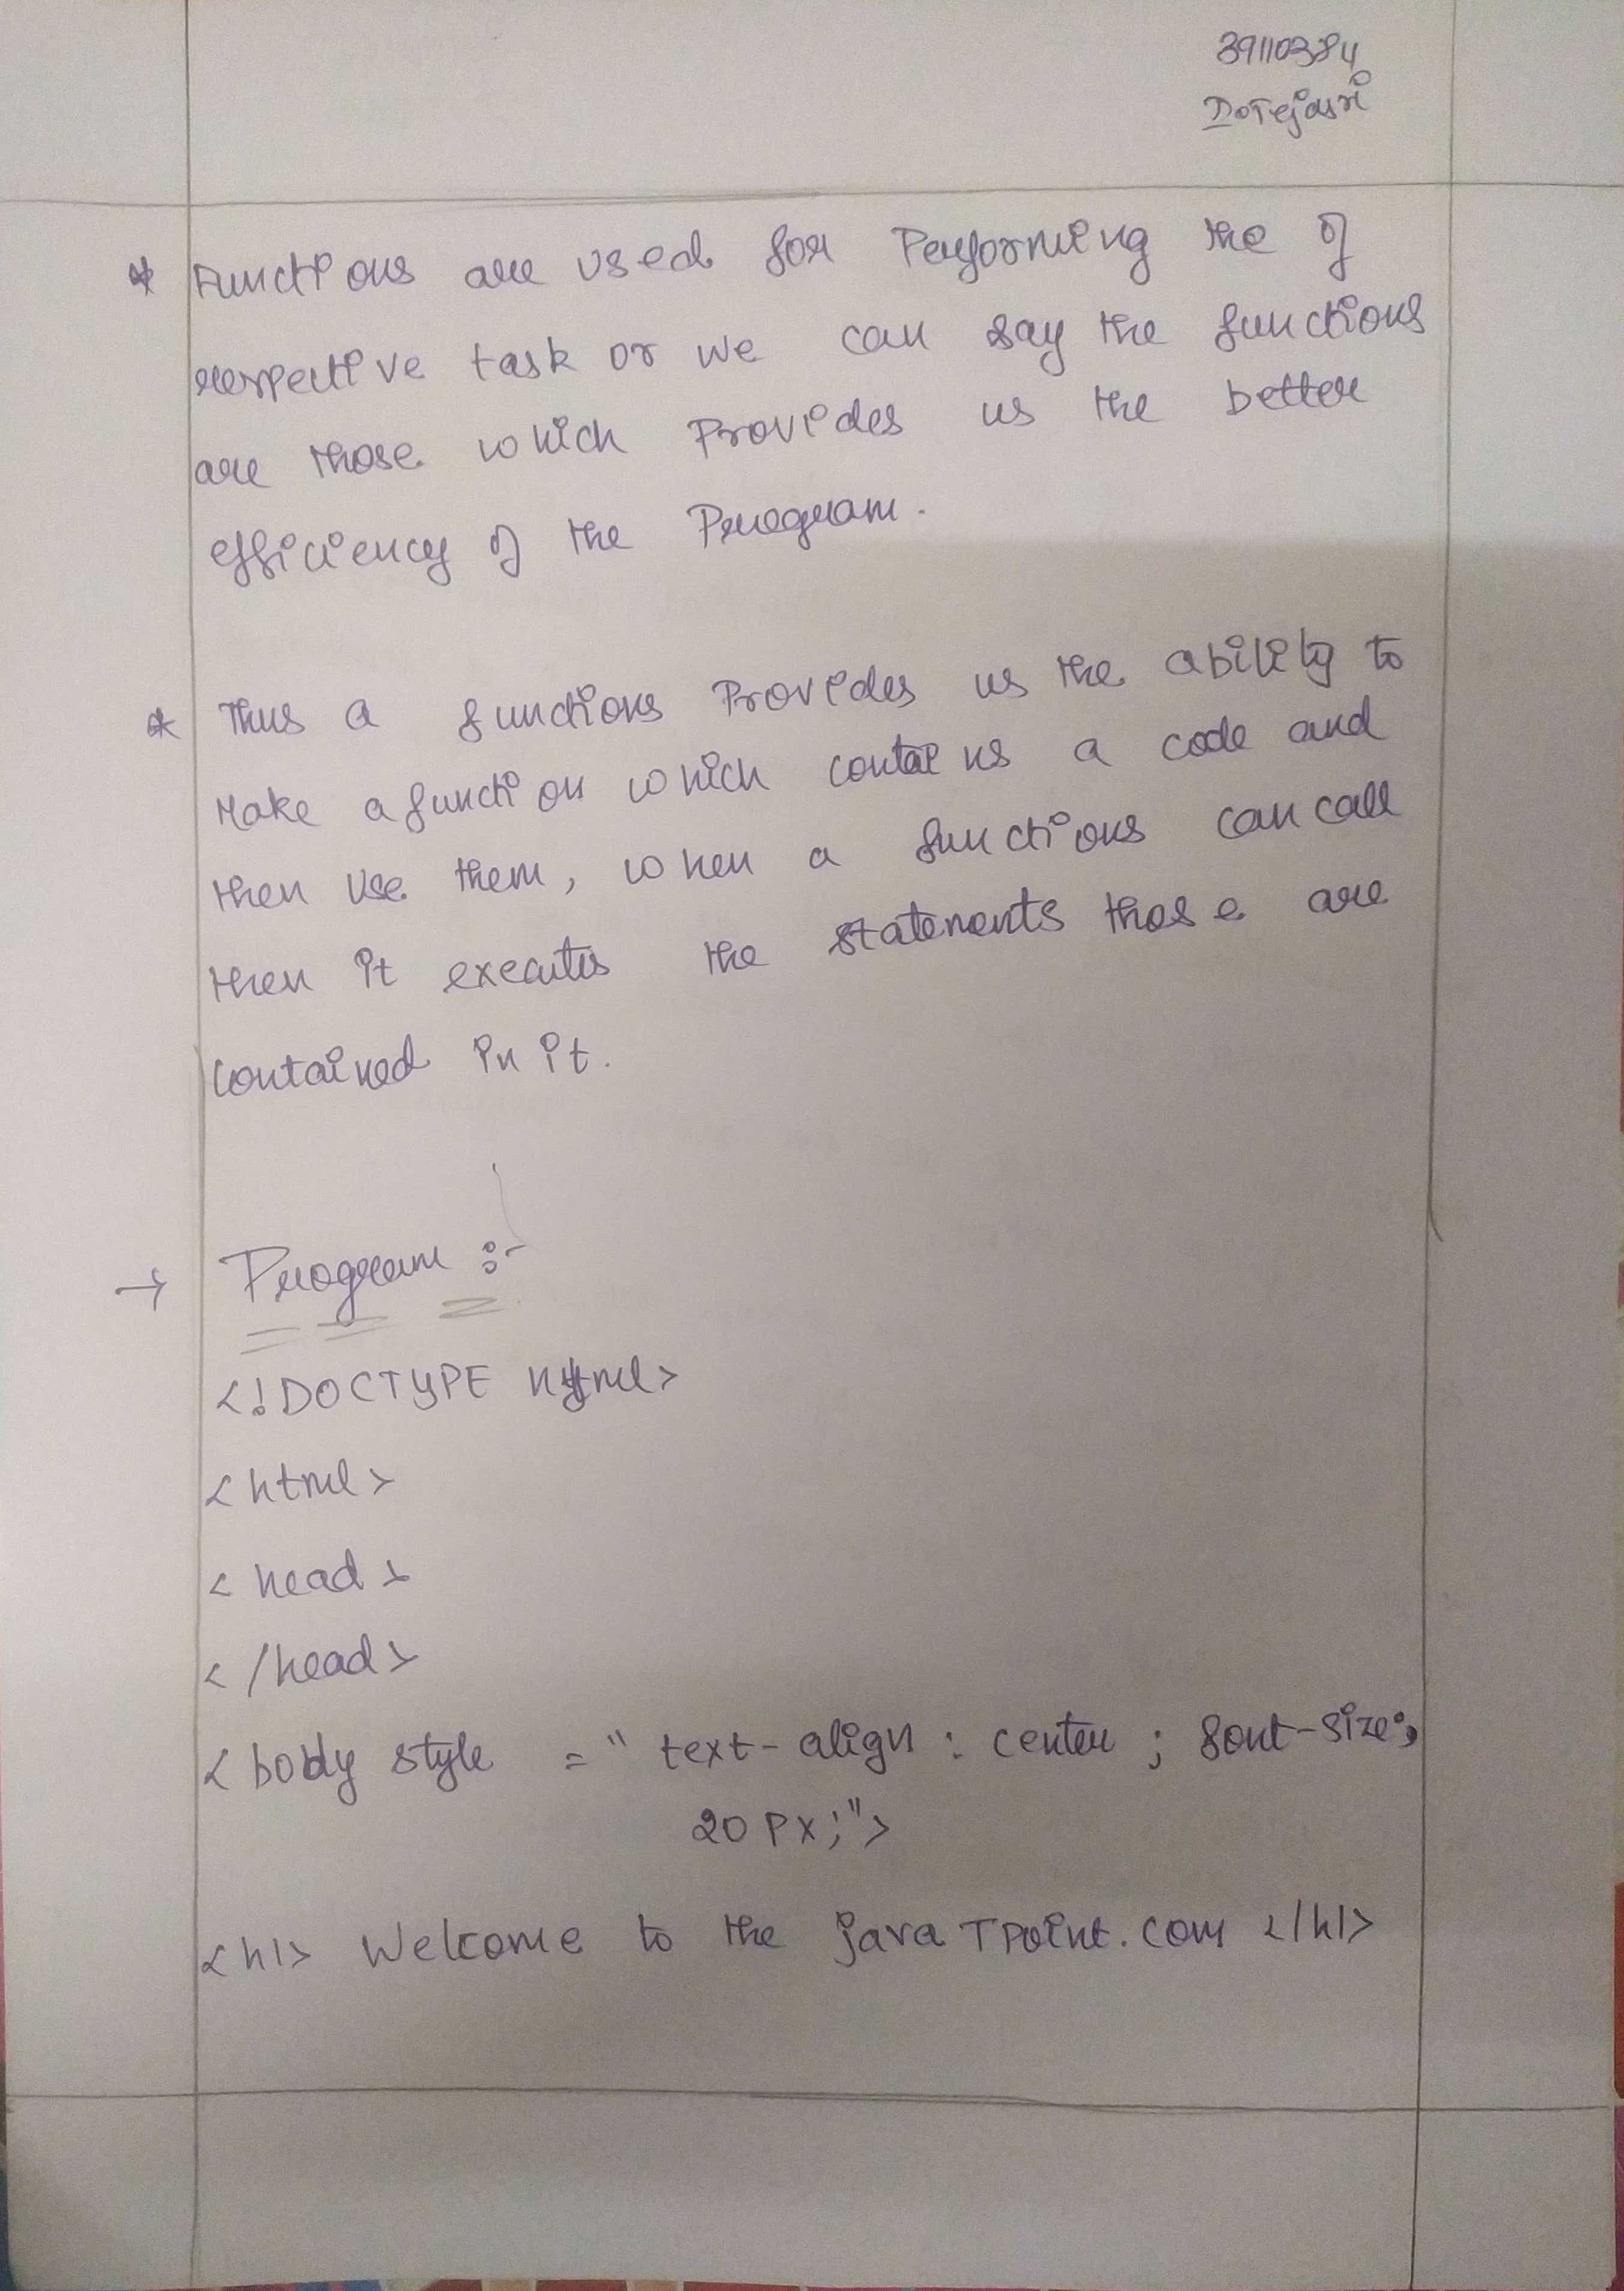 39110384
D.Tejasri
* Functions are used for Performing the of
respective task or we can say the functions
are those which Provides us the better
efficiency of the Program.
* Thus a functions Provides us the ability to
Make a function which contains a code and
then Use them, when a functions can call
then it executes the statements those are
contained in it.
→ Program :-
<!DOCTYPE html>
<html>
<head>
</head>
<body style = " text-align : center ; font-size:
20 Px;">
<h1> Welcome to the javaTpoint.com </h1>